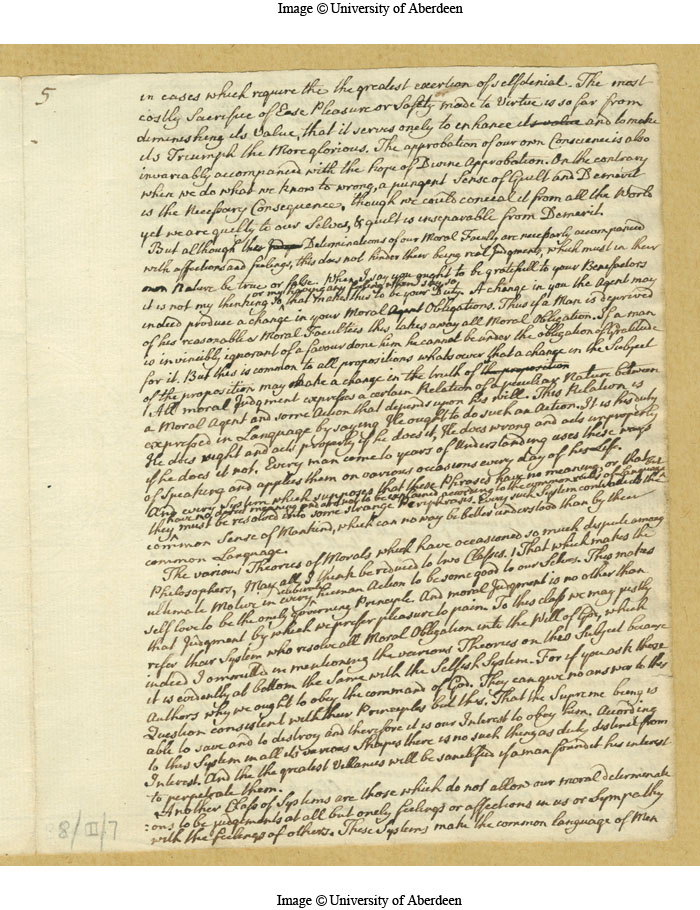 Image © University of Aberdeen
5
in cases which require the the greatest exertion of selfdenial. The most
costly Sacrifice of Ease Pleasure or Safety made to Virtue is so far from
diminishing its Value, that it serves onely to enhance its value and to make
its Triumph the More glorious. The approbation of our own Conscience is also
invariably accompanied with the hope of Divine Approbation. On the contrary
when we do what we know to wrong, a pungent Sense of Guilt and Demerit
is the Necessary Consequence, though we could conceal it from all the World
yet we are guilty to our Selves, & guilt is inseparable from Demerit.
But although the Determinations of our Moral Faculty are necessarly accompanied
with affections and feelings, this does not hinder their being real Judgments, which must in their
own Nature be true or false. When I say you ought to be gratefull to your Benefactors
it is not my thinking so or my having any feeling when I say so that makes this to be your Duty. A change in you the Agent may
indeed produce a change in your Moral Agent Obligations. Thus if a Man is deprived
of his reasonable or Moral Faculties this takes away all Moral Obligation. If a man
is invincibly ignorant of a favour done him he cannot be under the obligation of Gratitude
for it. But this is common to all propositions whatsoever that a change in the Subject
of the proposition may make a change in the truth of the proposition
All moral Judgment expresses a certain Relation of a peculiar Nature between
a Moral Agent and some Action that depends upon his will. This Relation is
expressed in Language by saying He ought to do such an Action. It is his duty
He does right and acts properly if he does it, He does wrong and acts improperly
if he does it not. Every man come to years of Understanding uses these ways
of speaking and applies them on various occasions every day of his Life.
And every System which supposes that these Phrases have no meaning, or that
have no meaning and are not to be explained according to the common rules of Language
they must be resolved into some strange Periphrases. Every such System contradicts the
common Sense of Mankind, which can no way be better understood than by their
common Language.
The various Theories of Morals which have occasioned so much dispute among
Philosophers, May all I think be reduced to two Classes. 1 That which makes the
ultimate Motive in every human Action to be some good to our Selves. This makes
self love to be the onely Governing Principle And moral Judgment is no other than
that Judgment by which we prefer pleasure to pain. To this class we may justly
refer their System who resolve all Moral Obligation into the Will of God, which
indeed I omitted in mentioning the various Theories on this Subject because
it is evidently at bottom the Same with the Selfish System. For if you ask these
Authors why we ought to obey the command of God. They can give no answer to this
Question consistent with their Principles but this. That the Supreme being is
able to save and to destroy and therefore it is our Interest to obey him. According
to this System in all its various Shapes there is no such thing as duty distinct from
Interest. And the the greatest Villanies will be sanctified if a man found it his interest
to perpetrate them.
Another Class of Systems are those which do not allow our moral determinati
:ons to be judgments at all but onely feelings or affections in us or Sympathy
with the feelings of others. These Systems make the common language of Men
8/II/7
Image © University of Aberdeen